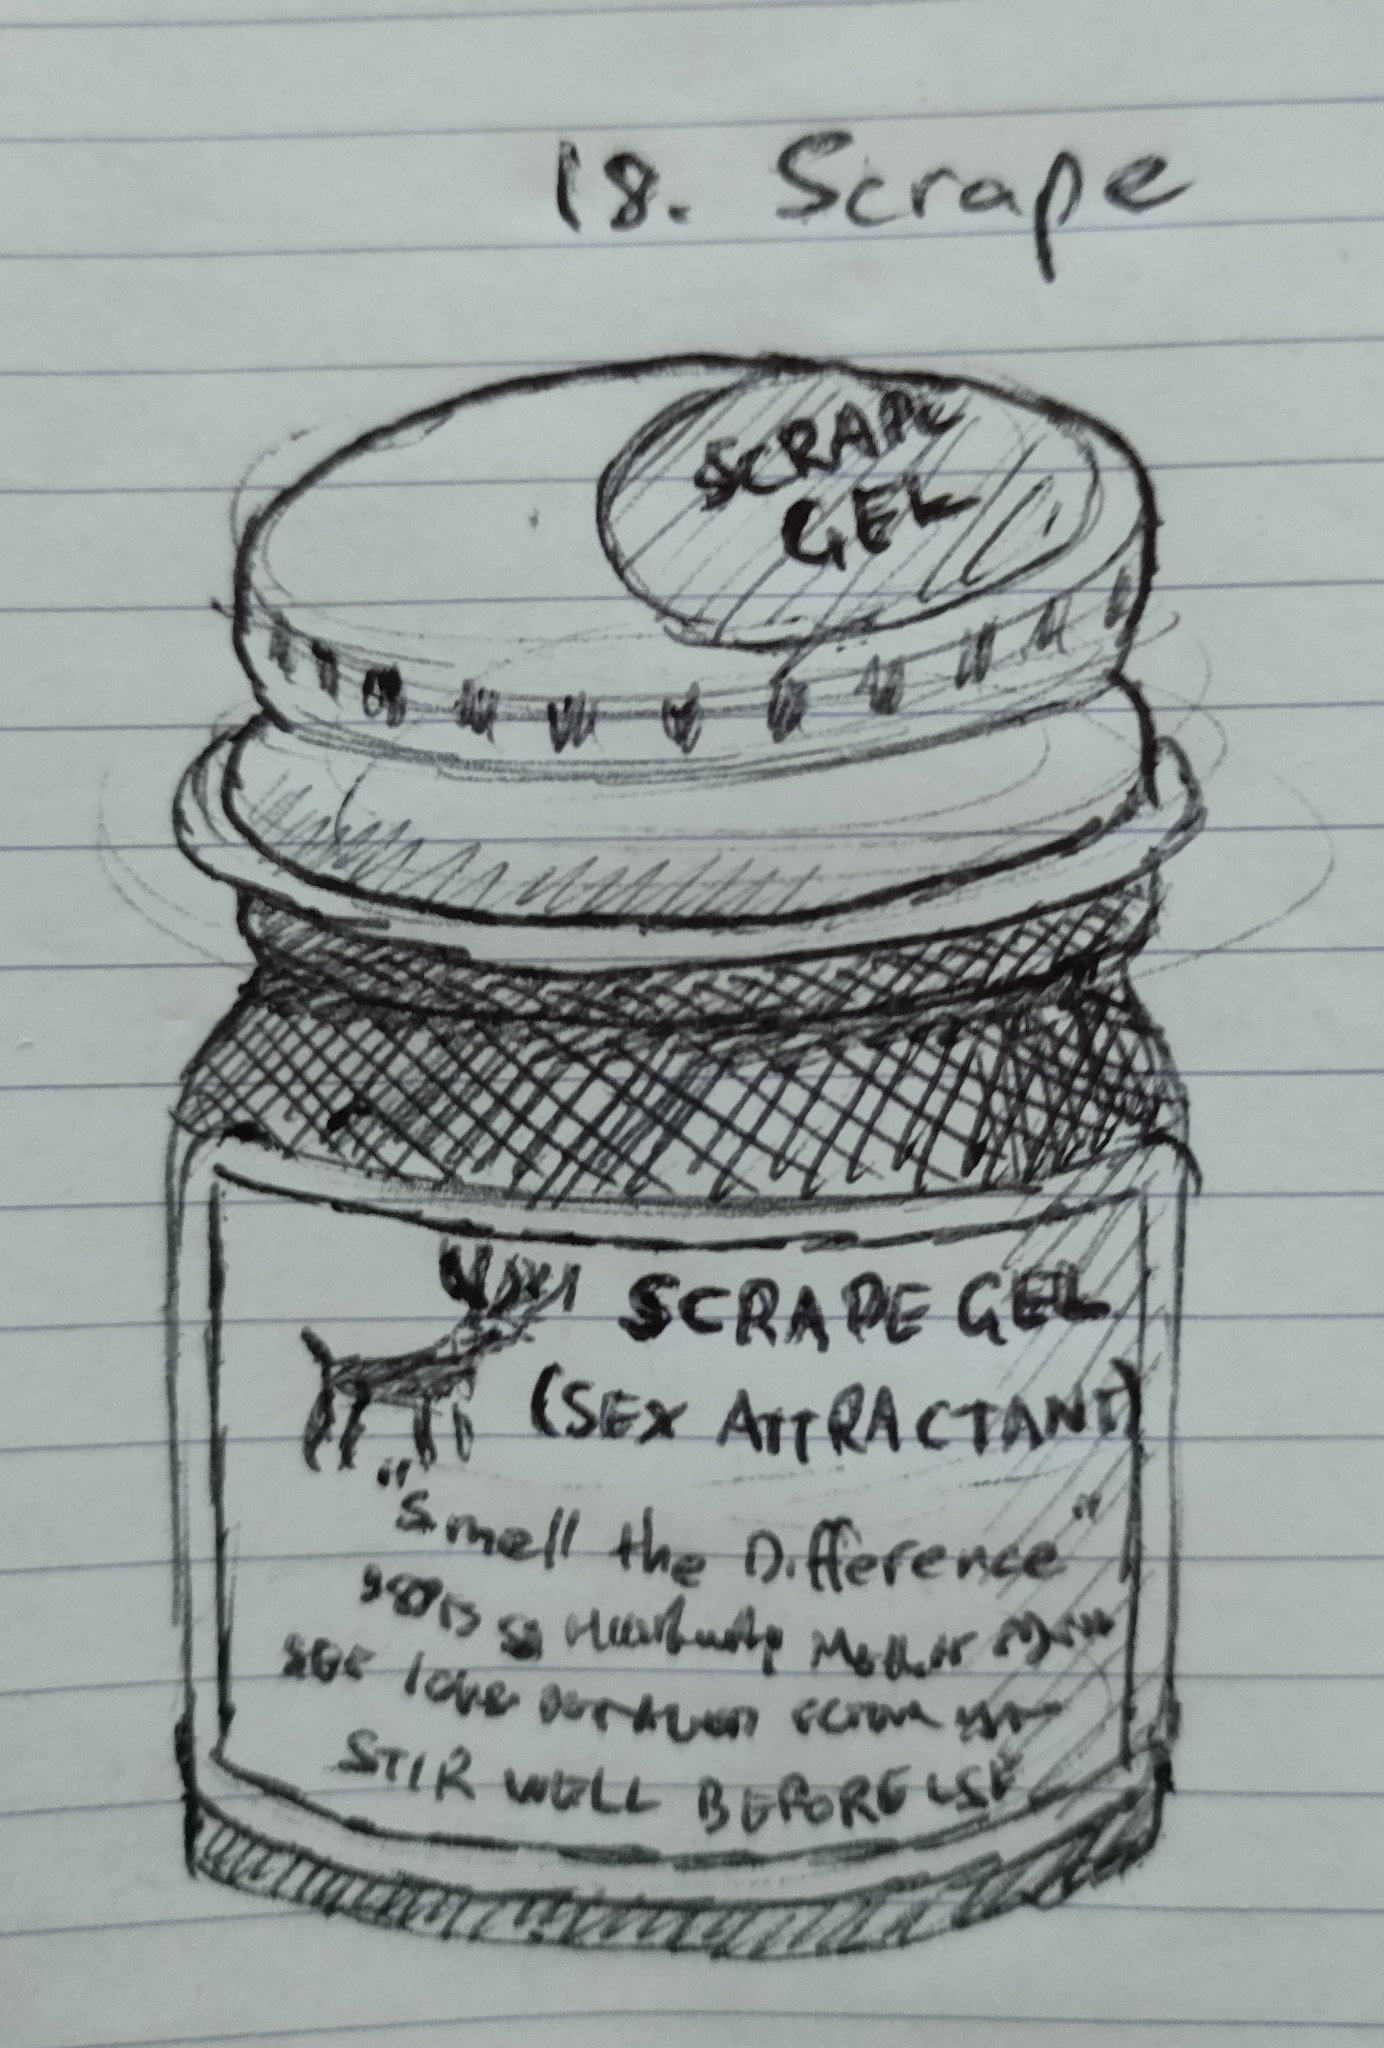 18. Scrape
SCRAPE
GEL
SCRAPE GEL
(SEX ATTRACTANT)
"Smell the Difference"
love
STIR WELL BEFORE USE